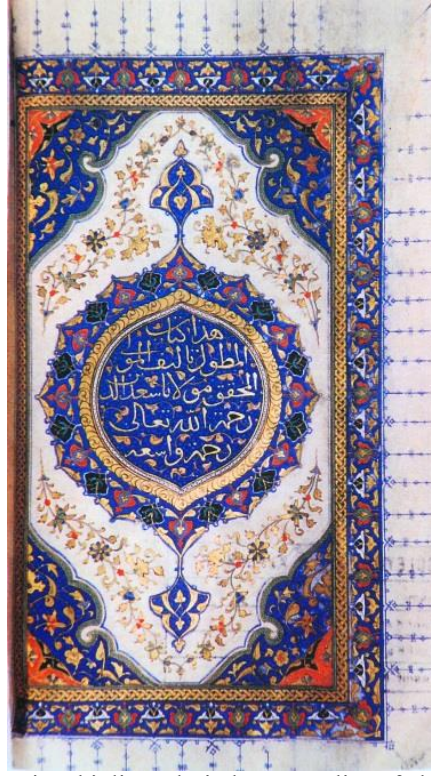 هذا كتاب
المطول تأليف المولى
المحقق مولانا سعد الدين
رحمه الله تعالى
رحمة واسعة